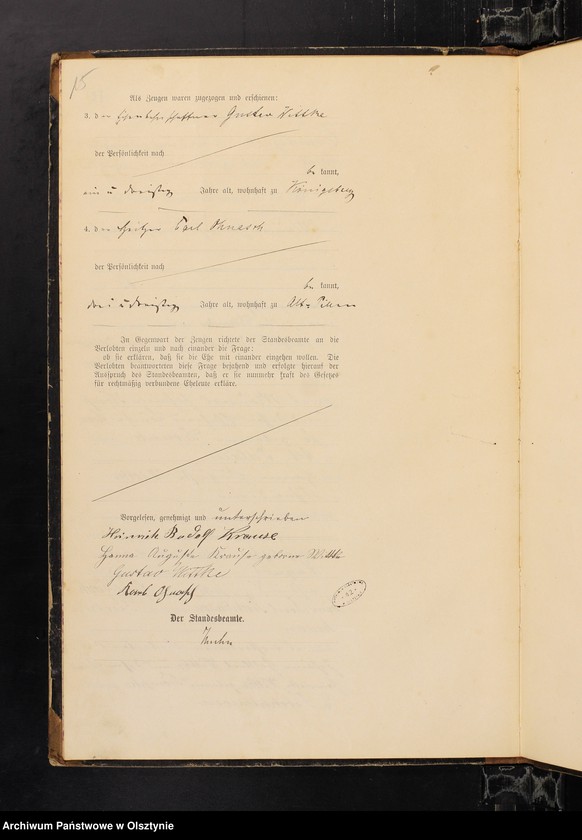 15
Als Zeugen waren zugezogen und erschienen:
3. der Gustav Wittke
der Persönlichkeit nach
be kannt,
ein u dreißig Jahre alt, wohnhaft zu Königsberg
4. der Carl
der Persönlichkeit nach
be kannt,
drei u dreißig Jahre alt, wohnhaft zu Alt
In Gegenwart der Zeugen richtete der Standesbeamte an die
Verlobten einzeln und nach einander die Frage:
ob sie erklären, daß sie die Ehe mit einander eingehen wollen. Die
Verlobten beantworteten diese Frage bejahend und erfolgte hierauf der
Ausspruch des Standesbeamten, daß er sie nunmehr kraft des Gesetzes
für rechtmäßig verbundene Eheleute erkläre.
Vorgelesen, genehmigt und unterschrieben
Heinrich Rudolf Krause
Auguste Krause geborne Wittke
Gustav Wittke
Der Standesbeamte.
Archiwum Państwowe w Olsztynie